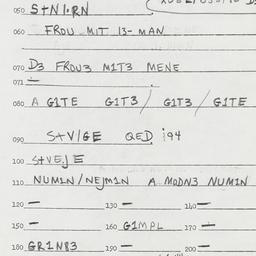 050 S+NI.RN
060 FROU MIT 13- MAN
070 D3 FROU3 M1T3 MENE
071 —
080 A G1TE G1T3 / G1T3 / G1TE
090 S+V/GE QED i94
100 S+VEJE
110 NUM1N/NEJM1N A MODN3 NUM1N
120 — 130 — 140 —
150 — 160 G1MPL 170 —
180 GR1N83 190 — 200 —